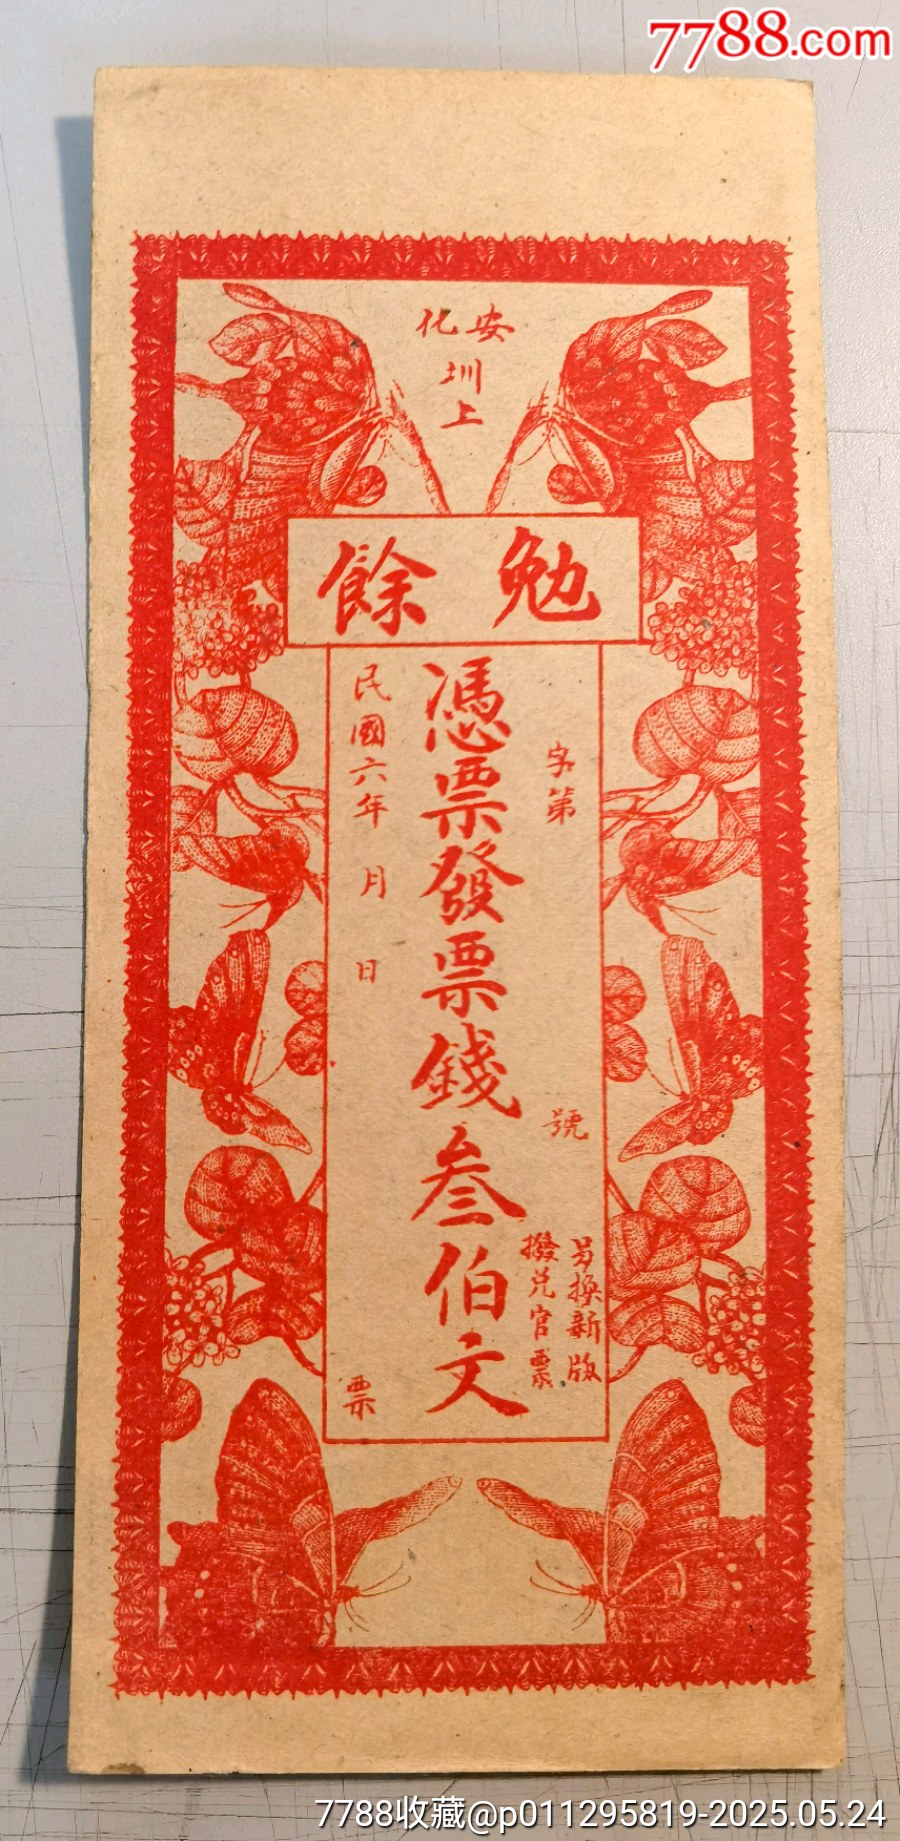 7788.com
安化
圳上
勉餘
字第
號
另換新版
撥兑官票
憑票發票錢叁伯文
民國六年 月 日
票
7788收藏@p011295819-2025.05.24